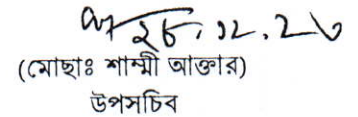 ২৮.১২.২৩
(মোছাঃ শাম্মী আক্তার)
উপসচিব